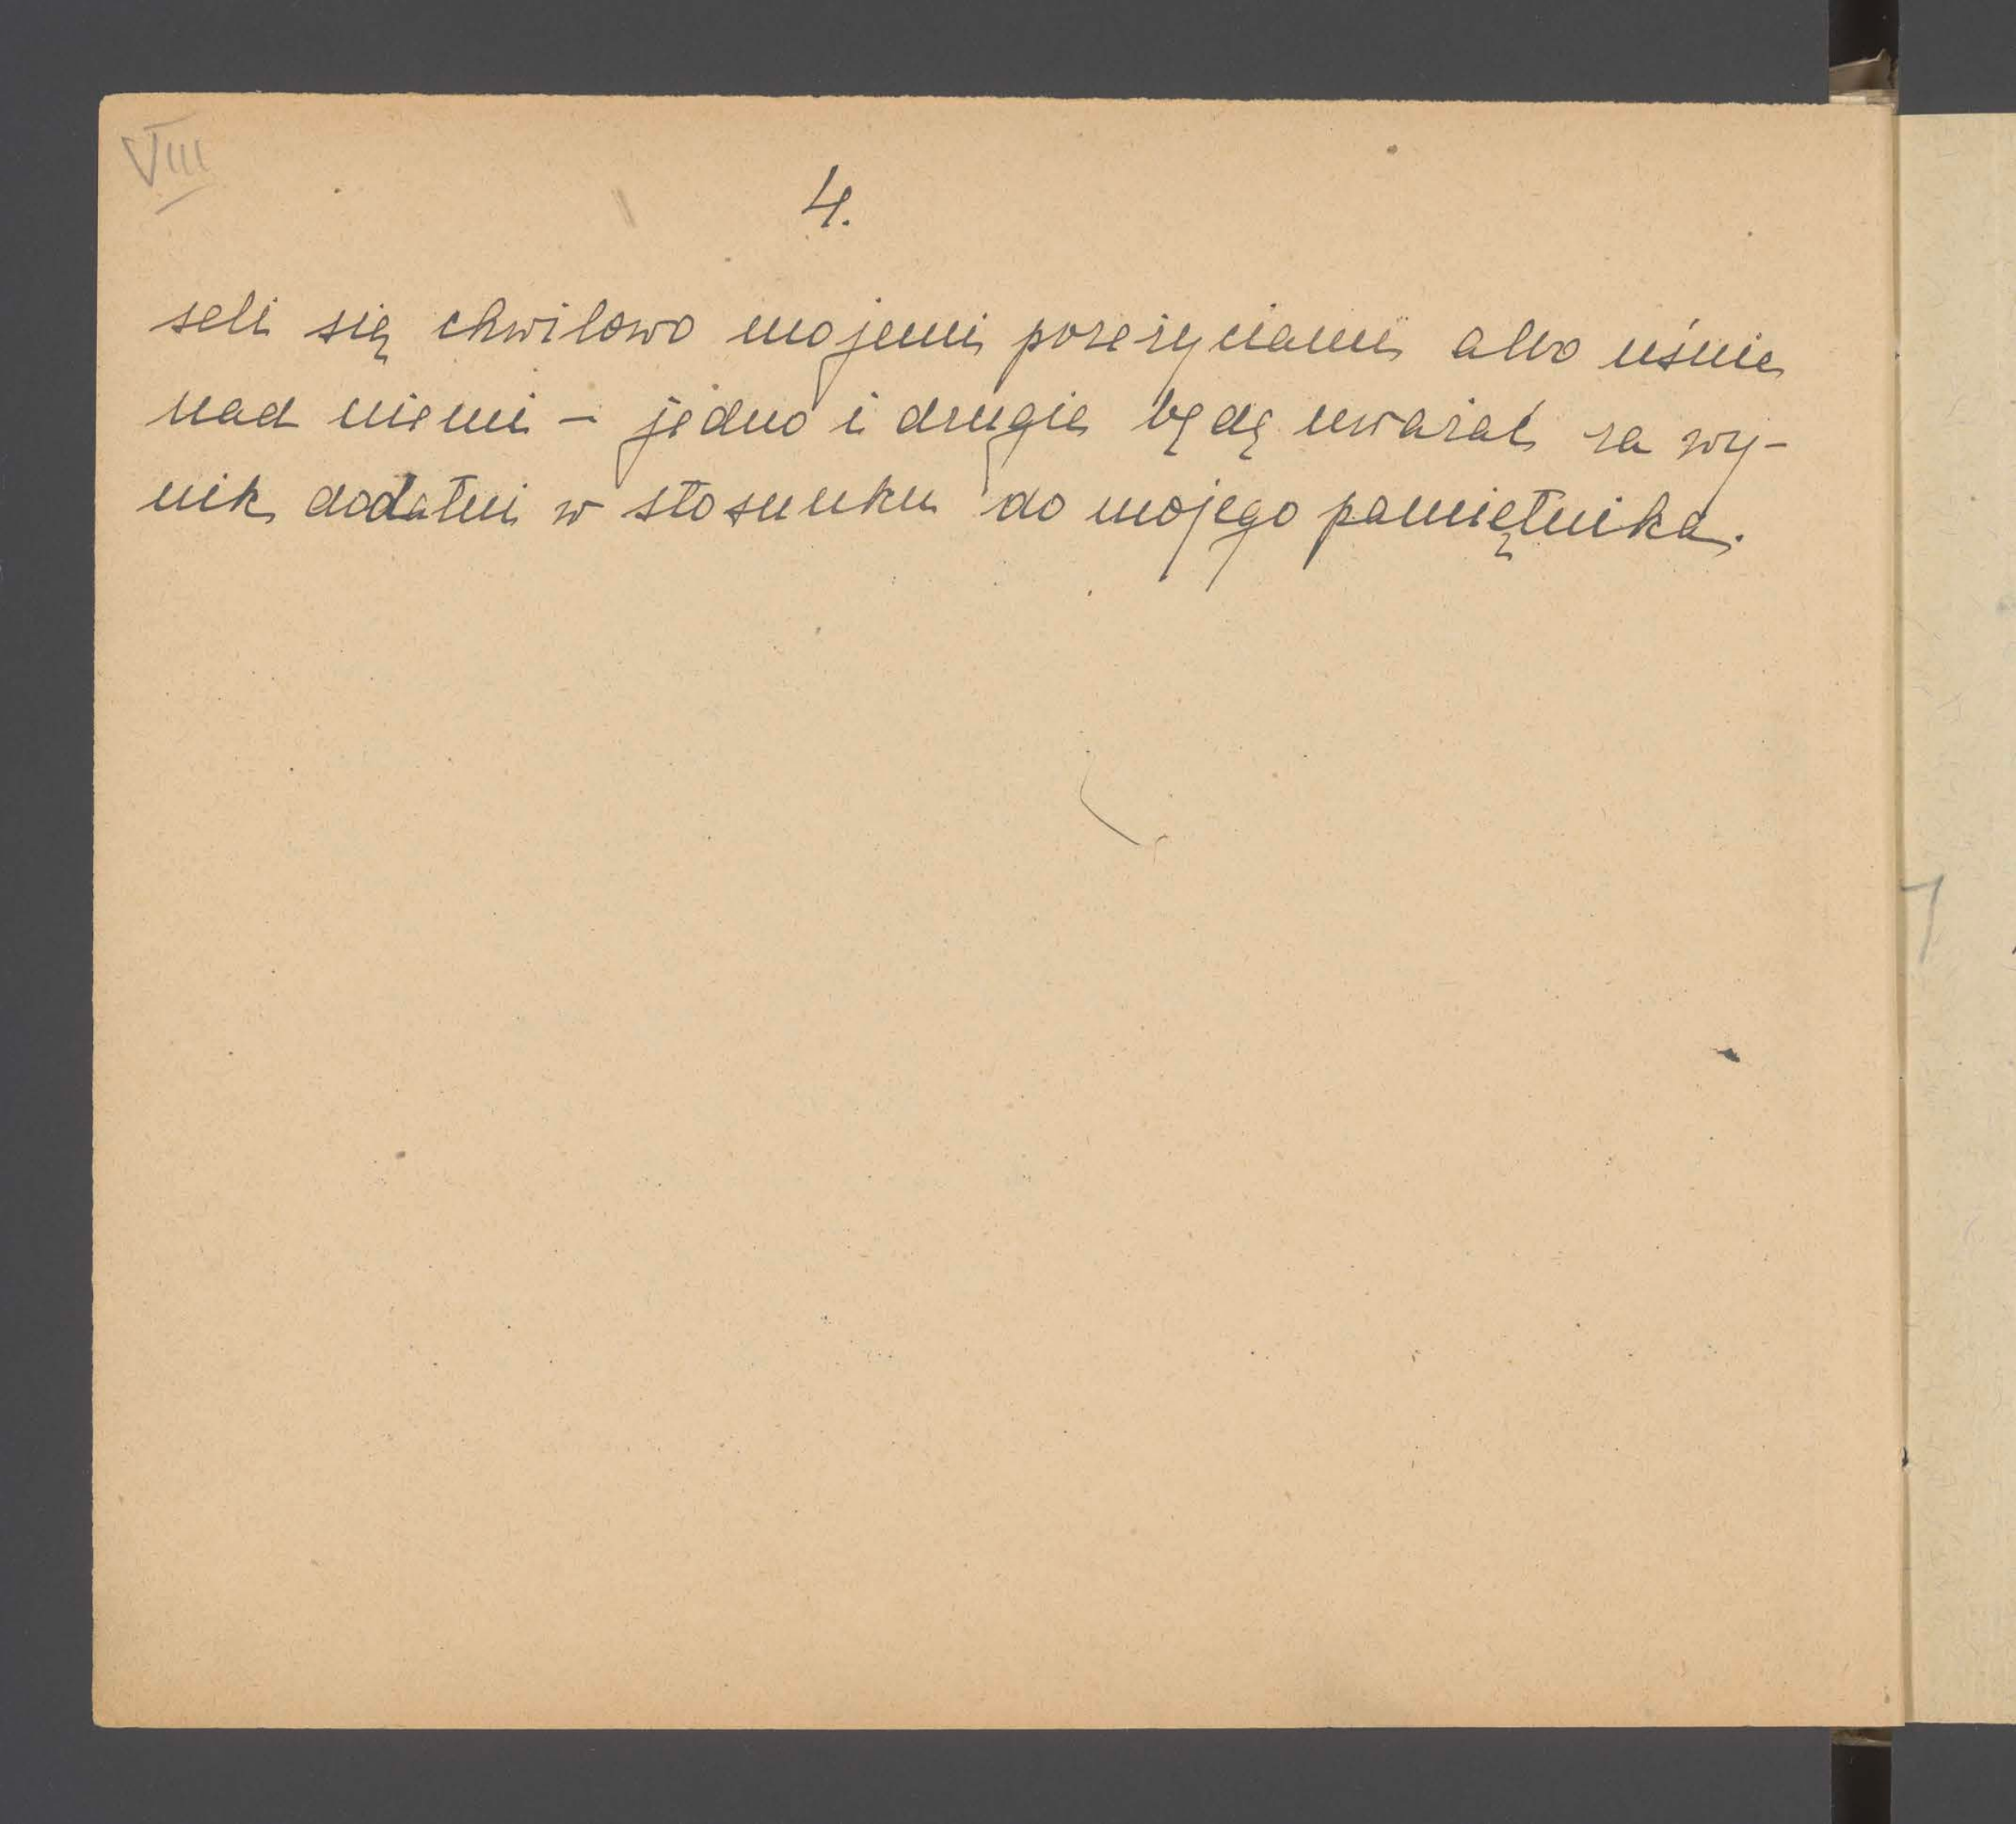 VIII
4.
seli się chwilowo mojemi przeżyciami albo uśnie
nad niemi – jedno i drugie będę uważał za wy-
nik dodatni w stosunku do mojego pamiętnika.